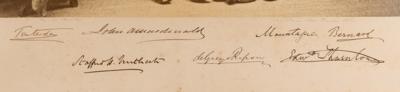 Tenterden John A Macdonald Mountague Bernard
Stafford H. Northcote de Grey & Ripon Edwd Thornton